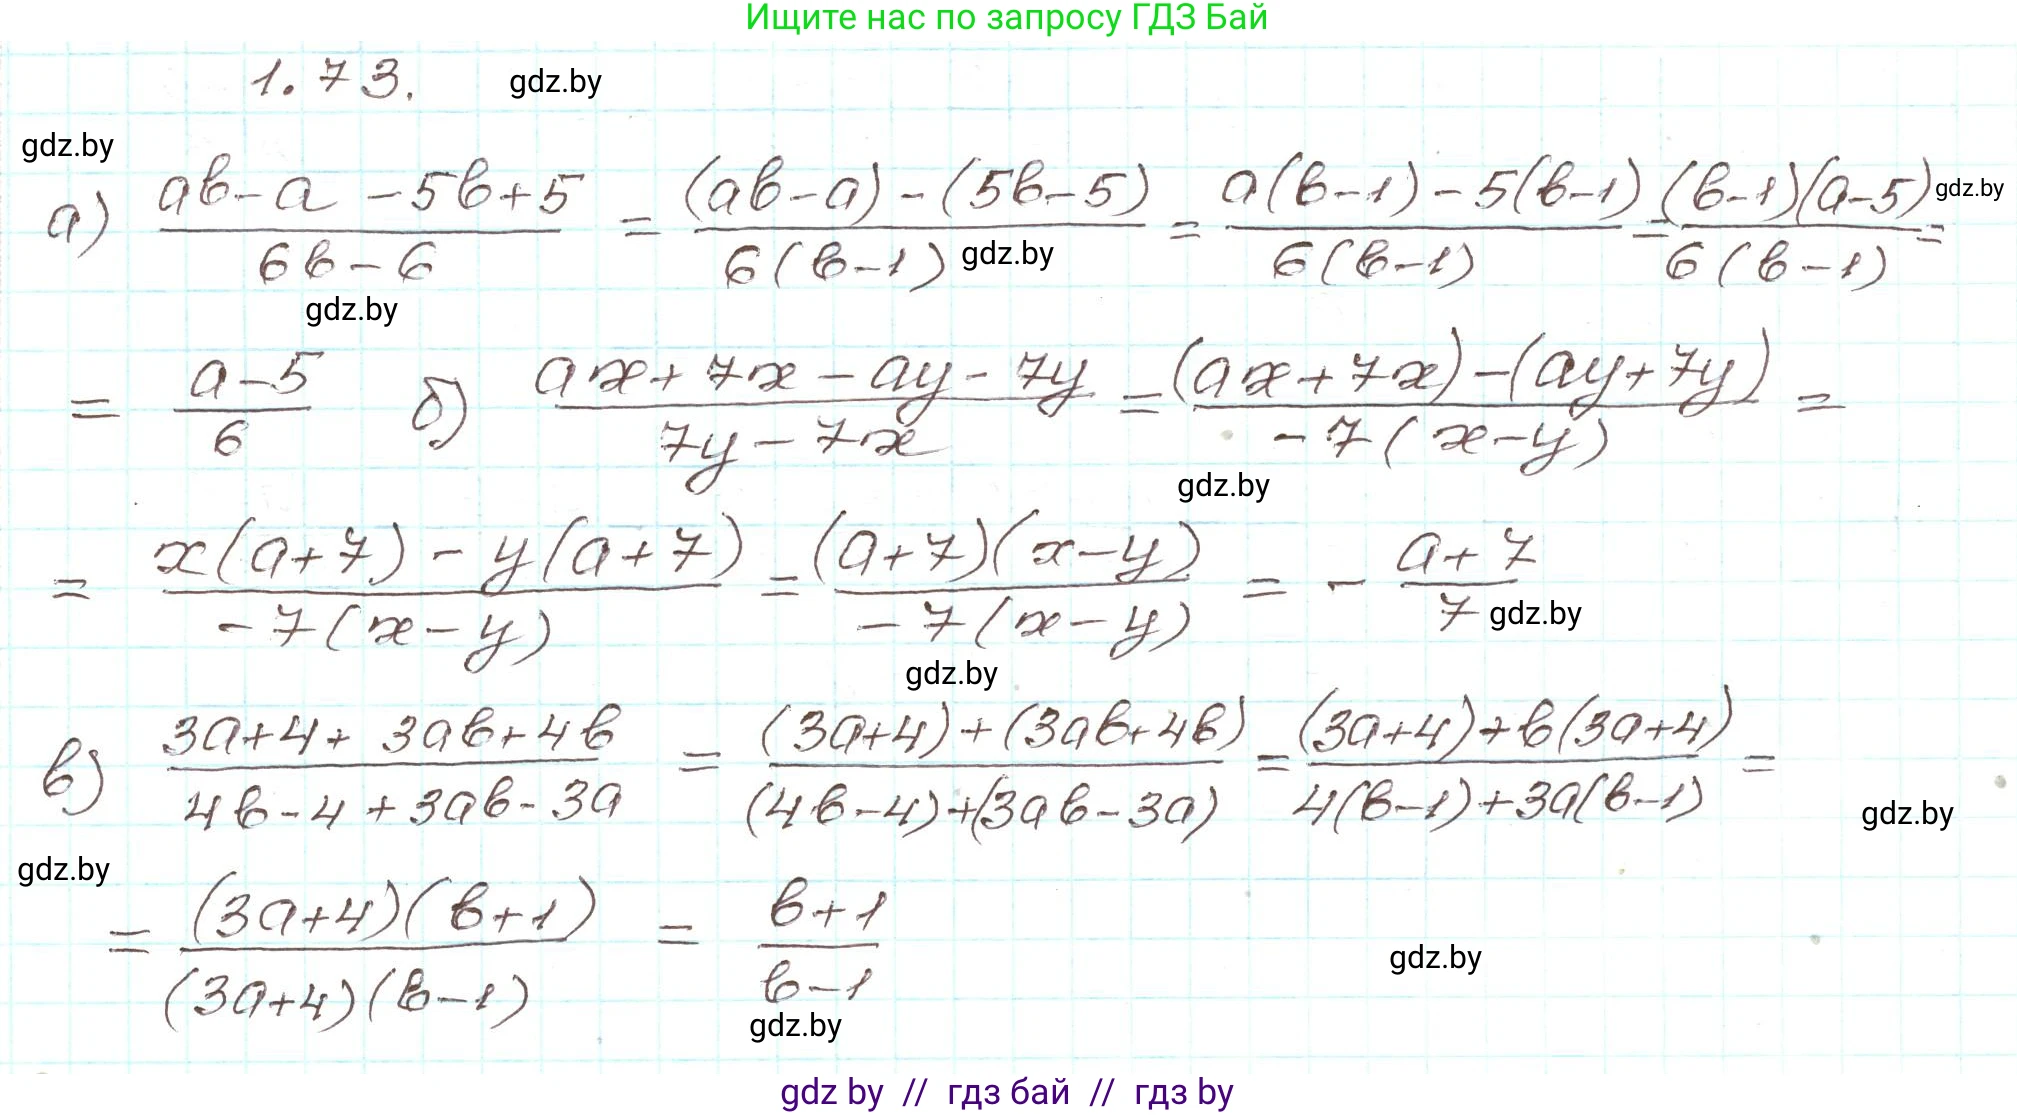 Ищите нас по запросу ГДЗ Бай
1.73. gdz.by
gdz.by
а) (ab-a-5b+5)/(6b-6) = ((ab-a)-(5b-5))/(6(b-1)) = (a(b-1)-5(b-1))/(6(b-1)) = ((b-1)(a-5))/(6(b-1)) = gdz.by
gdz.by gdz.by
= (a-5)/6 б) (ax+7x-ay-7y)/(7y-7x) = ((ax+7x)-(ay+7y))/(-7(x-y)) =
gdz.by
= (x(a+7)-y(a+7))/(-7(x-y)) = ((a+7)(x-y))/(-7(x-y)) = -(a+7)/7 gdz.by
gdz.by
в) (3a+4+3ab+4b)/(4b-4+3ab-3a) = ((3a+4)+(3ab+4b))/((4b-4)+(3ab-3a)) = ((3a+4)+b(3a+4))/(4(b-1)+3a(b-1)) =
gdz.by
gdz.by
= ((3a+4)(b+1))/((3a+4)(b-1)) = (b+1)/(b-1) gdz.by
gdz.by
gdz by // гдз бай // гдз by